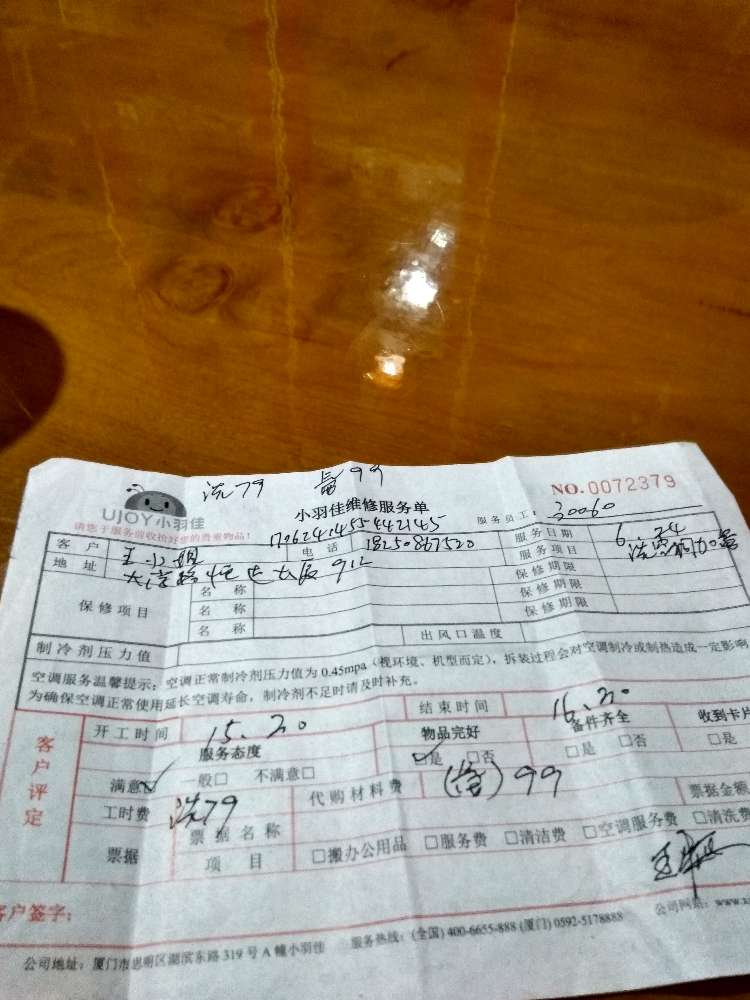 洗79 99
UJOY小羽佳
小羽佳维修服务单
NO.0072379
请您于服务前收拾好您的贵重物品!
服务员工: 30060
客户 王小姐 17062414554442145 电话 18250867520 服务日期 6.24
地址 912 服务项目
保修项目 名称 保修期限
名称 保修期限
名称 保修期限
制冷剂压力值 出风口温度
空调服务温馨提示:空调正常制冷剂压力值为0.45mpa(视环境、机型而定),拆装过程会对空调制冷或制热造成一定影响
为确保空调正常使用延长空调寿命,制冷剂不足时请及时补充。
客户评定
开工时间 15.20 结束时间 16.20
服务态度 物品完好 备件齐全 收到卡片
满意□ 一般□ 不满意□ □是 □否 □是 □否 □是
工时费 洗79 代购材料费 99 票据金额
票据 票据名称
项目 □搬办公用品 □服务费 □清洁费 □空调服务费 □清洗费
客户签字:
公司地址:厦门市思明区湖滨东路319号A幢小羽佳 服务热线:(全国)400-6655-888(厦门)0592-5178888 公司网站:www.x